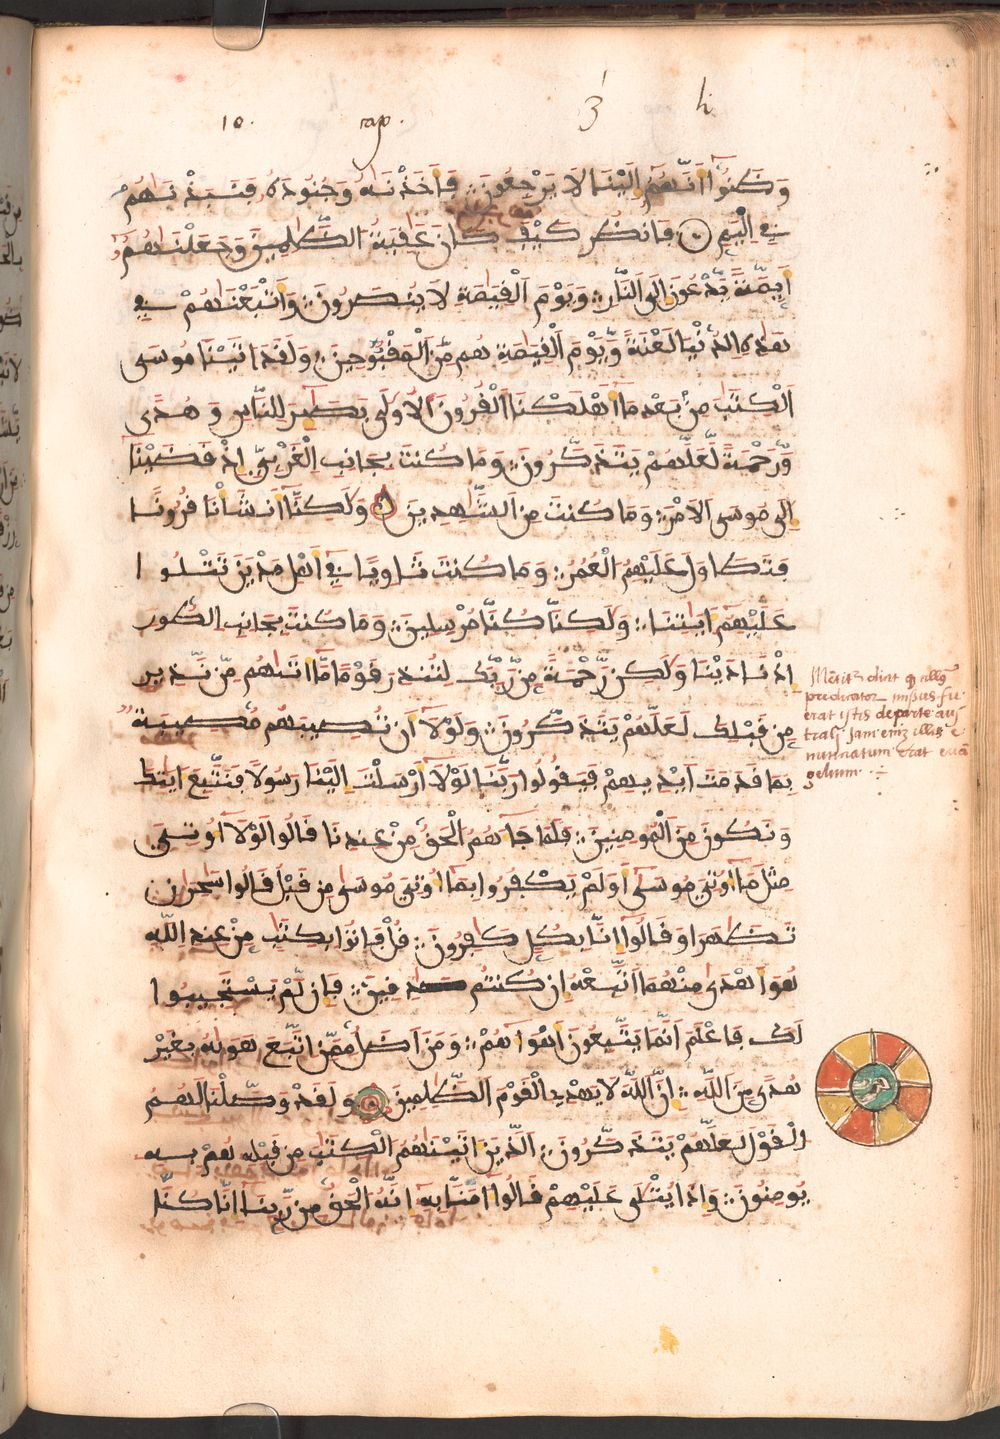 10. cap. 3 li
وَظَنُّوا أَنَّهُمْ إِلَيْنَا لَا يَرْجِعُونَ فَأَخَذْنَهُ وَجُنُودَهُ فَنَبَذْنَهُمْ
فِي الْيَمِّ فَانظُرْ كَيْفَ كَانَ عَقِبَةُ الظَّلِمِينَ وَجَعَلْنَهُمُ
أَيِمَّةً يَدْعُونَ إِلَى النَّارِ وَيَوْمَ الْقِيَمَةِ لَا يُنصَرُونَ وَأَتْبَعْنَهُمْ فِي
هَذِهِ الدُّنْيَا لَعْنَةً وَيَوْمَ الْقِيَمَةِ هُم مِّنَ الْمَقْبُوحِينَ وَلَقَدْ اتَيْنَا مُوسَى
الْكِتَبَ مِنْ بَعْدِ مَا أَهْلَكْنَا الْقُرُونَ الْأُولَى بَصَيِرَ لِلنَّاسِ وَهُدًى
وَرَحْمَةً لَّعَلَّهُمْ يَتَذَكَّرُونَ وَمَا كُنتَ بِجَانِبِ الْغَرْبِيِّ إِذْ قَضَيْنَا
إِلَى مُوسَى الْأَمْرَ وَمَا كُنتَ مِنَ الشَّهِدِينَ وَلَكِنَّا أَنشَأْنَا قُرُونًا
فَتَطَاوَلَ عَلَيْهِمُ الْعُمُرُ وَمَا كُنتَ ثَاوِيًا فِي أَهْلِ مَدْيَنَ تَتْلُوا
عَلَيْهِمْ ايَتِنَا وَلَكِنَّا كُنَّا مُرْسِلِينَ وَمَا كُنتَ بِجَانِبِ الطُّورِ
إِذْ نَادَيْنَا وَلَكِن رَّحْمَةً مِّن رَّبِّكَ لِتُنذِرَ قَوْمًا مَّا أَتَىهُم مِّن نَّذِيرٍ
مِن قَبْلِكَ لَعَلَّهُمْ يَتَذَكَّرُونَ وَلَوْلَا أَن تُصِيبَهُم مُّصِيبَةٌ
بِمَا قَدَّمَتْ أَيْدِيهِمْ فَيَقُولُوا رَبَّنَا لَوْلَا أَرْسَلْتَ إِلَيْنَا رَسُولًا فَنَتَّبِعَ ايَتِكَ
وَنَكُونَ مِنَ الْمُومِنِينَ فَلَمَّا جَاهُمُ الْحَقُّ مِنْ عِندِنَا قَالُوا لَوْلَا أُوتِيَ
مِثْلَ مَا أُوتِيَ مُوسَى أَوَلَمْ يَكْفُرُوا بِمَا أُوتِيَ مُوسَى مِن قَبْلُ قَالُوا سَحِرَانِ
تَظَهَرَا وَقَالُوا إِنَّا بِكُلٍّ كَفِرُونَ قُلْ فَاتُوا بِكِتَبٍ مِّنْ عِندِ اللَّهِ
هُوَ أَهْدَى مِنْهُمَا أَتَّبِعْهُ إِن كُنتُمْ صَدِقِينَ فَإِن لَّمْ يَسْتَجِيبُوا
لَكَ فَاعْلَمْ أَنَّمَا يَتَّبِعُونَ أَهْوَاهُمْ وَمَنْ أَضَلُّ مِمَّنِ اتَّبَعَ هَوَىهُ بِغَيْرِ
هُدًى مِّنَ اللَّهِ إِنَّ اللَّهَ لَا يَهْدِي الْقَوْمَ الظَّلِمِينَ وَلَقَدْ وَصَّلْنَا لَهُمُ
الْقَوْلَ لَعَلَّهُمْ يَتَذَكَّرُونَ الَّذِينَ اتَيْنَهُمُ الْكِتَبَ مِن قَبْلِهِ هُمْ بِهِ
يُومِنُونَ وَإِذَا يُتْلَى عَلَيْهِمْ قَالُوا امَنَّا بِهِ إِنَّهُ الْحَقُّ مِن رَّبِّنَا إِنَّا كُنَّا
predicator missus fu
erat istis de parte aus
tralj